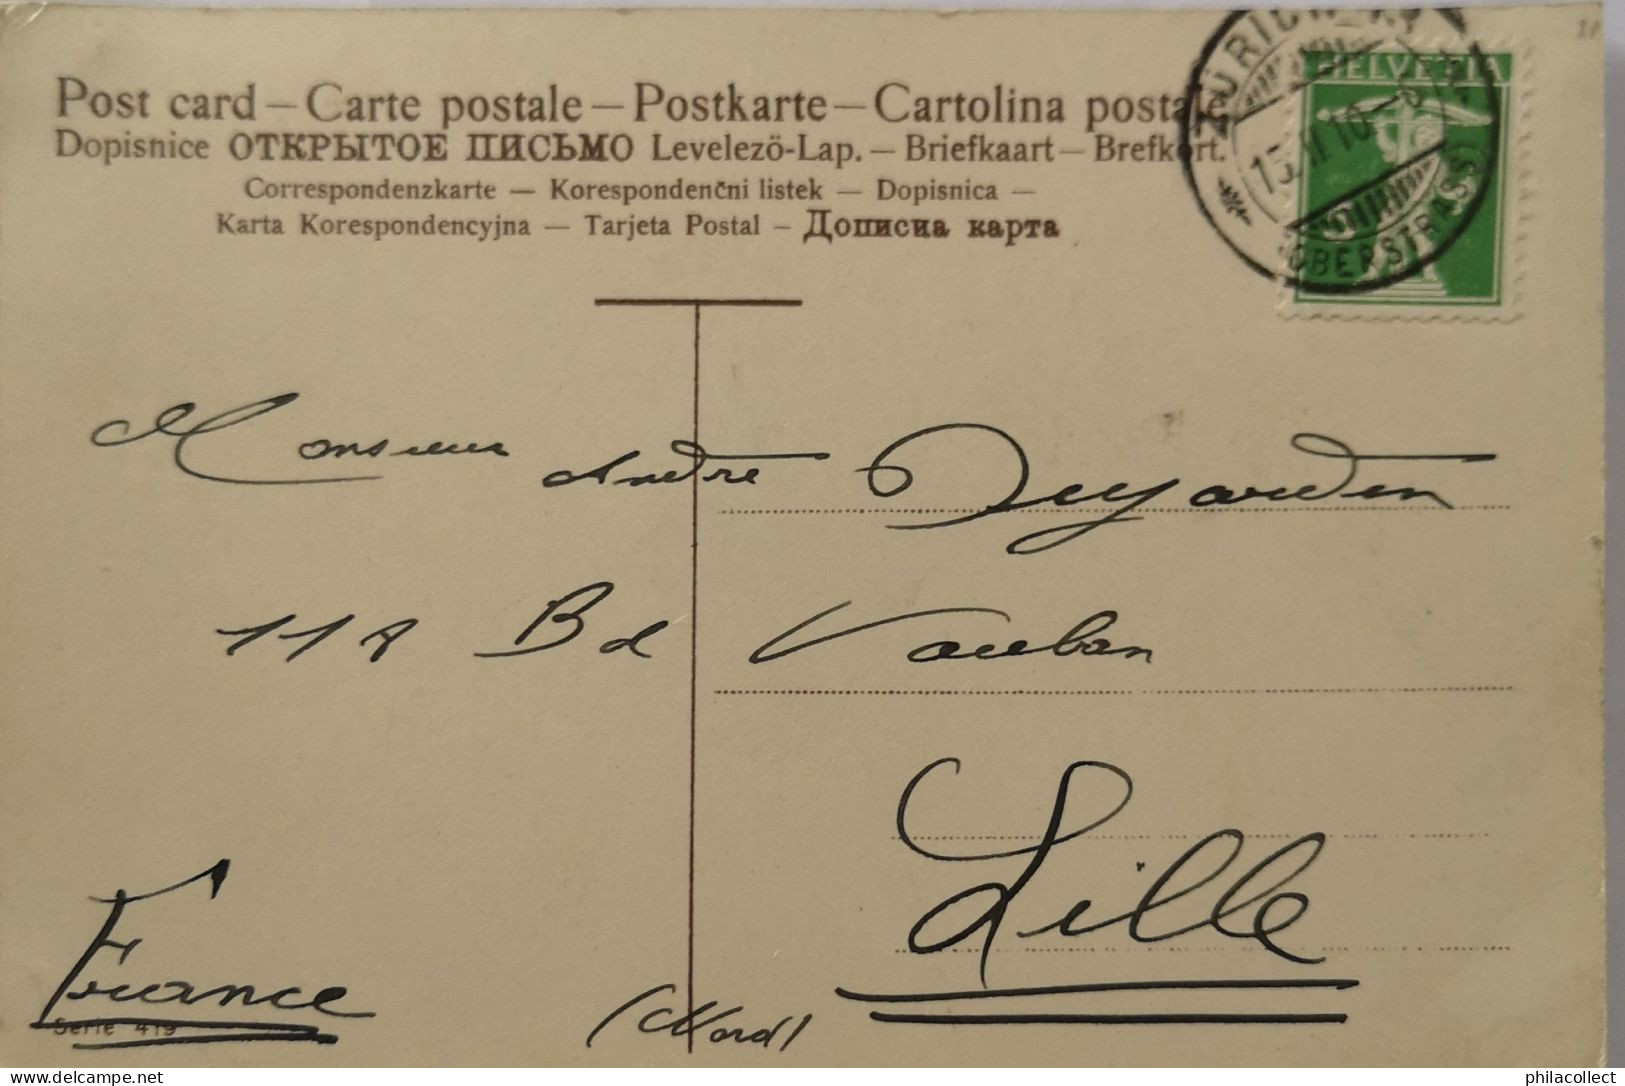 Post card – Carte postale – Postkarte – Cartolina postale
Dopisnice ОТКРЫТОЕ ПИСЬМО Levelezö-Lap. – Briefkaart – Brefkort.
Correspondenzkarte — Korespondenční listek — Dopisnica —
Karta Korespondencyjna — Tarjeta Postal – Дописна карта
HELVETIA
(OBERSTRASS)
Monsieur André
118 Bd Vauban
Lille
France
(Nord)
Serie 419
philacollect